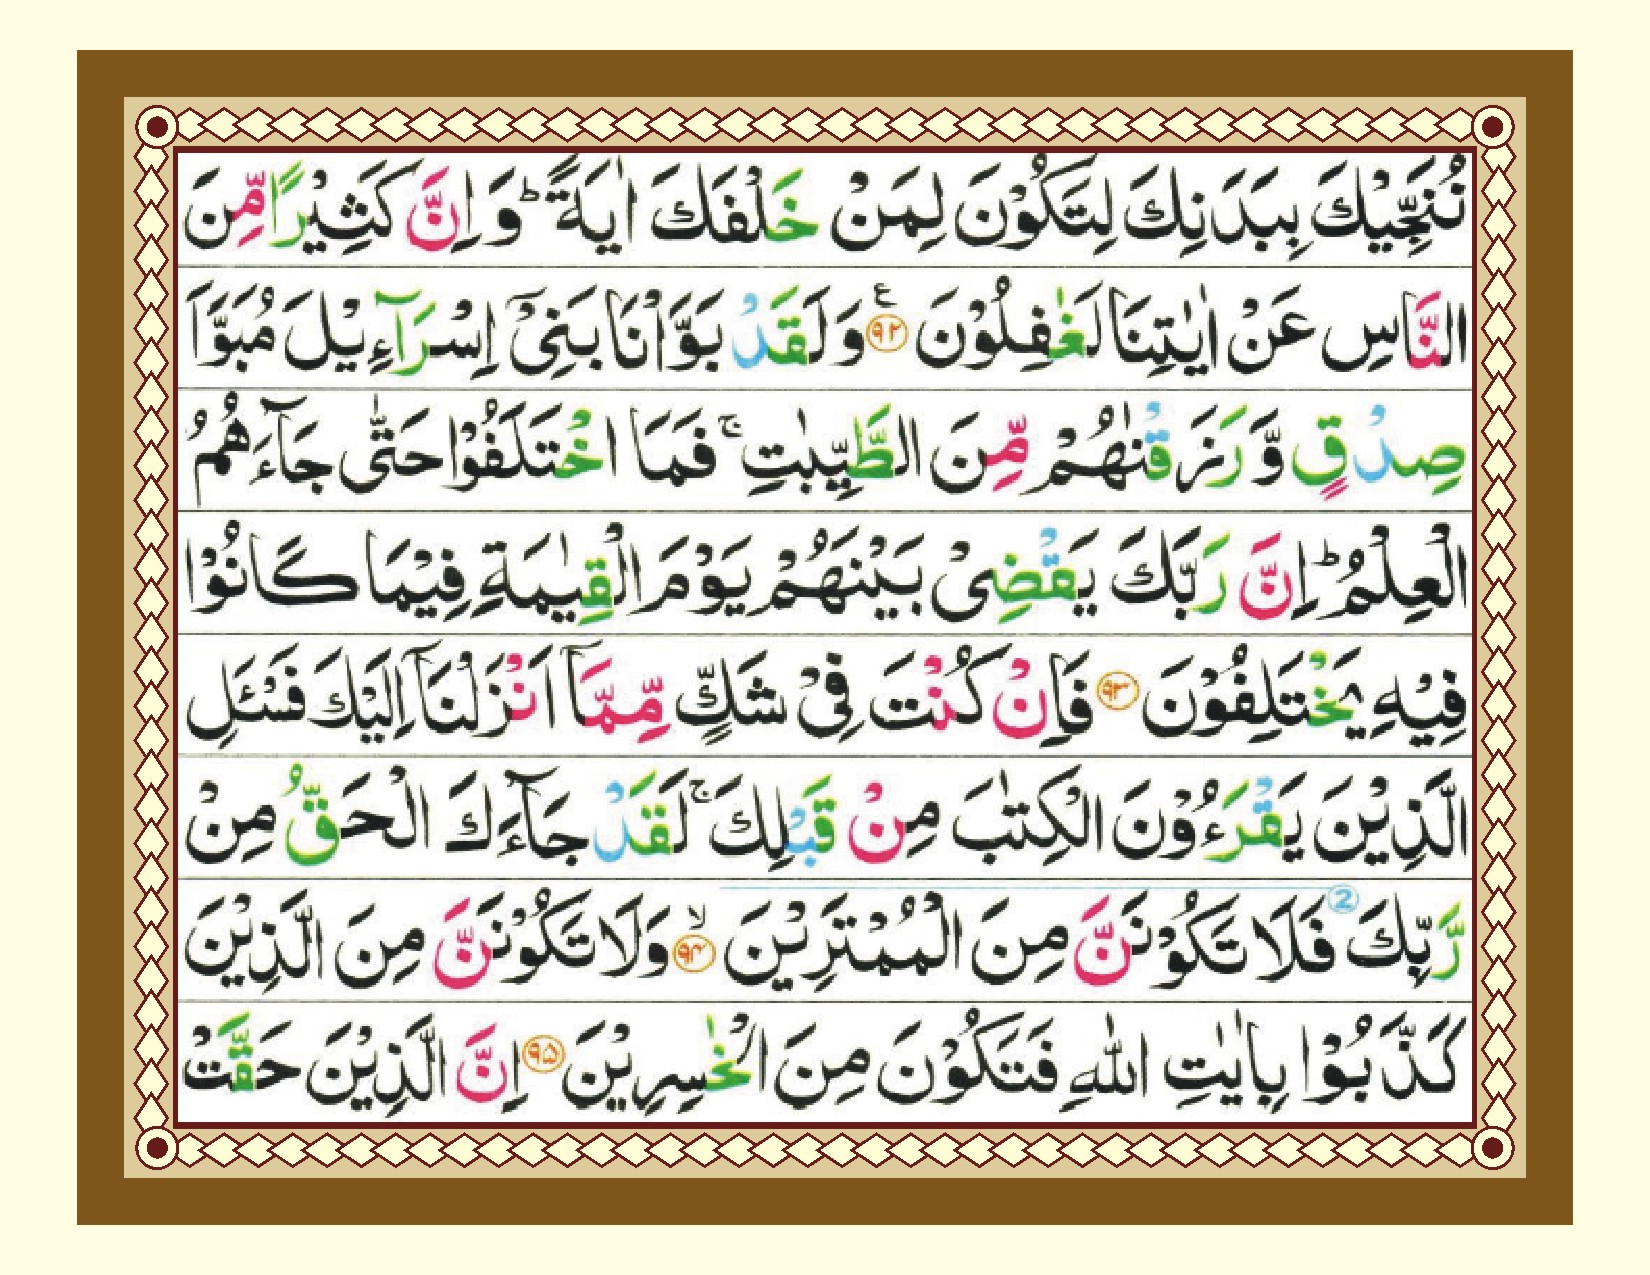 نُنَجِّيْكَ بِبَدَنِكَ لِتَكُوْنَ لِمَنْ خَلْفَكَ اٰيَةً ؕ وَ اِنَّ كَثِيْرًا مِّنَ
النَّاسِ عَنْ اٰيٰتِنَا لَغٰفِلُوْنَ ﴿۹۲﴾ ع وَ لَقَدْ بَوَّاْنَا بَنِيْۤ اِسْرَآءِيْلَ مُبَوَّاَ
صِدْقٍ وَّ رَزَقْنٰهُمْ مِّنَ الطَّيِّبٰتِ ۚ فَمَا اخْتَلَفُوْا حَتّٰى جَآءَهُمُ
الْعِلْمُ ؕ اِنَّ رَبَّكَ يَقْضِيْ بَيْنَهُمْ يَوْمَ الْقِيٰمَةِ فِيْمَا كَانُوْا
فِيْهِ يَخْتَلِفُوْنَ ﴿۹۳﴾ فَاِنْ كُنْتَ فِيْ شَكٍّ مِّمَّاۤ اَنْزَلْنَاۤ اِلَيْكَ فَسْـَٔلِ
الَّذِيْنَ يَقْرَءُوْنَ الْكِتٰبَ مِنْ قَبْلِكَ ۚ لَقَدْ جَآءَكَ الْحَقُّ مِنْ
رَّبِّكَ 2 فَلَا تَكُوْنَنَّ مِنَ الْمُمْتَرِيْنَ ﴿۹۴﴾ ۙ وَلَا تَكُوْنَنَّ مِنَ الَّذِيْنَ
كَذَّبُوْا بِاٰيٰتِ اللّٰهِ فَتَكُوْنَ مِنَ الْخٰسِرِيْنَ ﴿۹۵﴾ اِنَّ الَّذِيْنَ حَقَّتْ